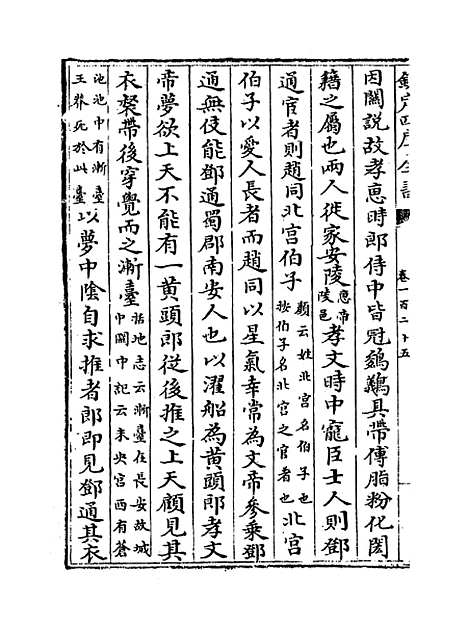 欽定四庫全書
卷一百二十五
因關說故孝惠時郎侍中皆冠鵕䴊貝帶傅脂粉化閎
籍之屬也兩人徙家安陵惠帝陵邑孝文時中寵臣士人則鄧
通宦者則趙同北宮伯子顏云姓北宮名伯子也按伯子名北宮之宦者也北宮
伯子以愛人長者而趙同以星氣幸常為文帝參乘鄧
通無伎能鄧通蜀郡南安人也以濯船為黃頭郎孝文
帝夢欲上天不能有一黃頭郎從後推之上天顧見其
衣裻帶後穿覺而之漸臺括地志云漸臺在長安故城中關中記云未央宮西有蒼
池池中有漸臺王莽死於此臺以夢中陰自求推者郎即見鄧通其衣